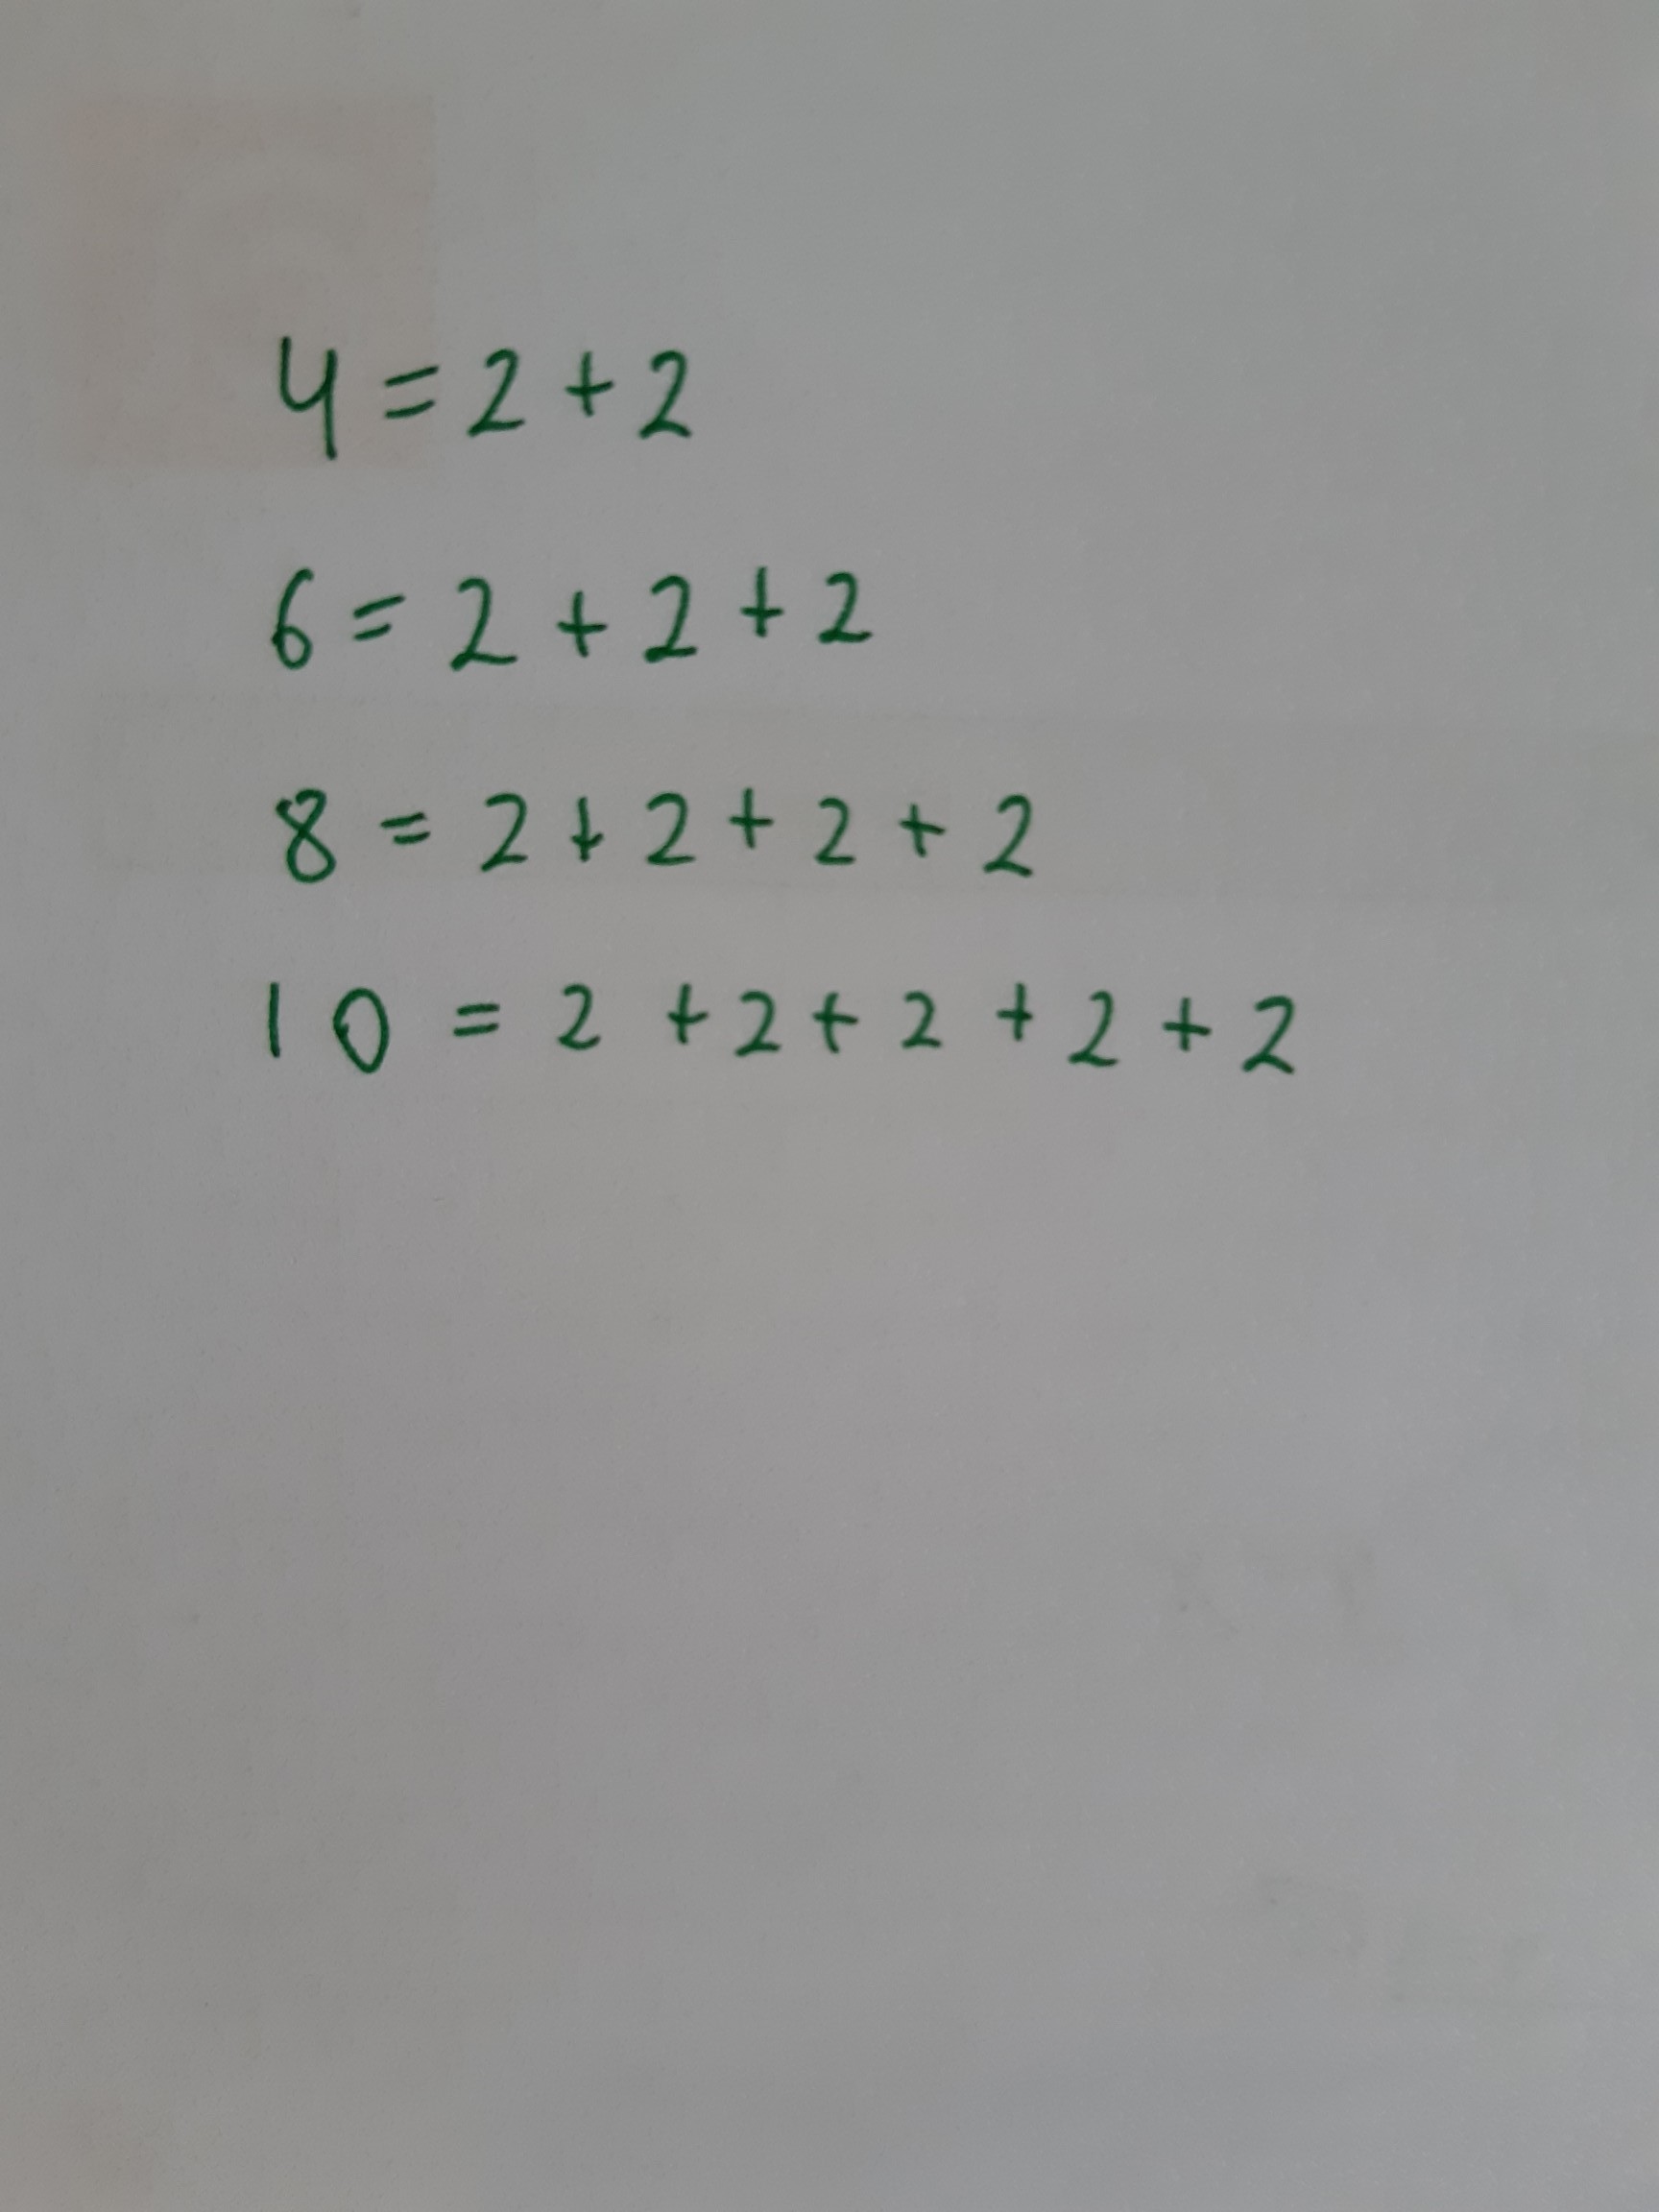 4 = 2 + 2
6 = 2 + 2 + 2
8 = 2 + 2 + 2 + 2
10 = 2 + 2 + 2 + 2 + 2